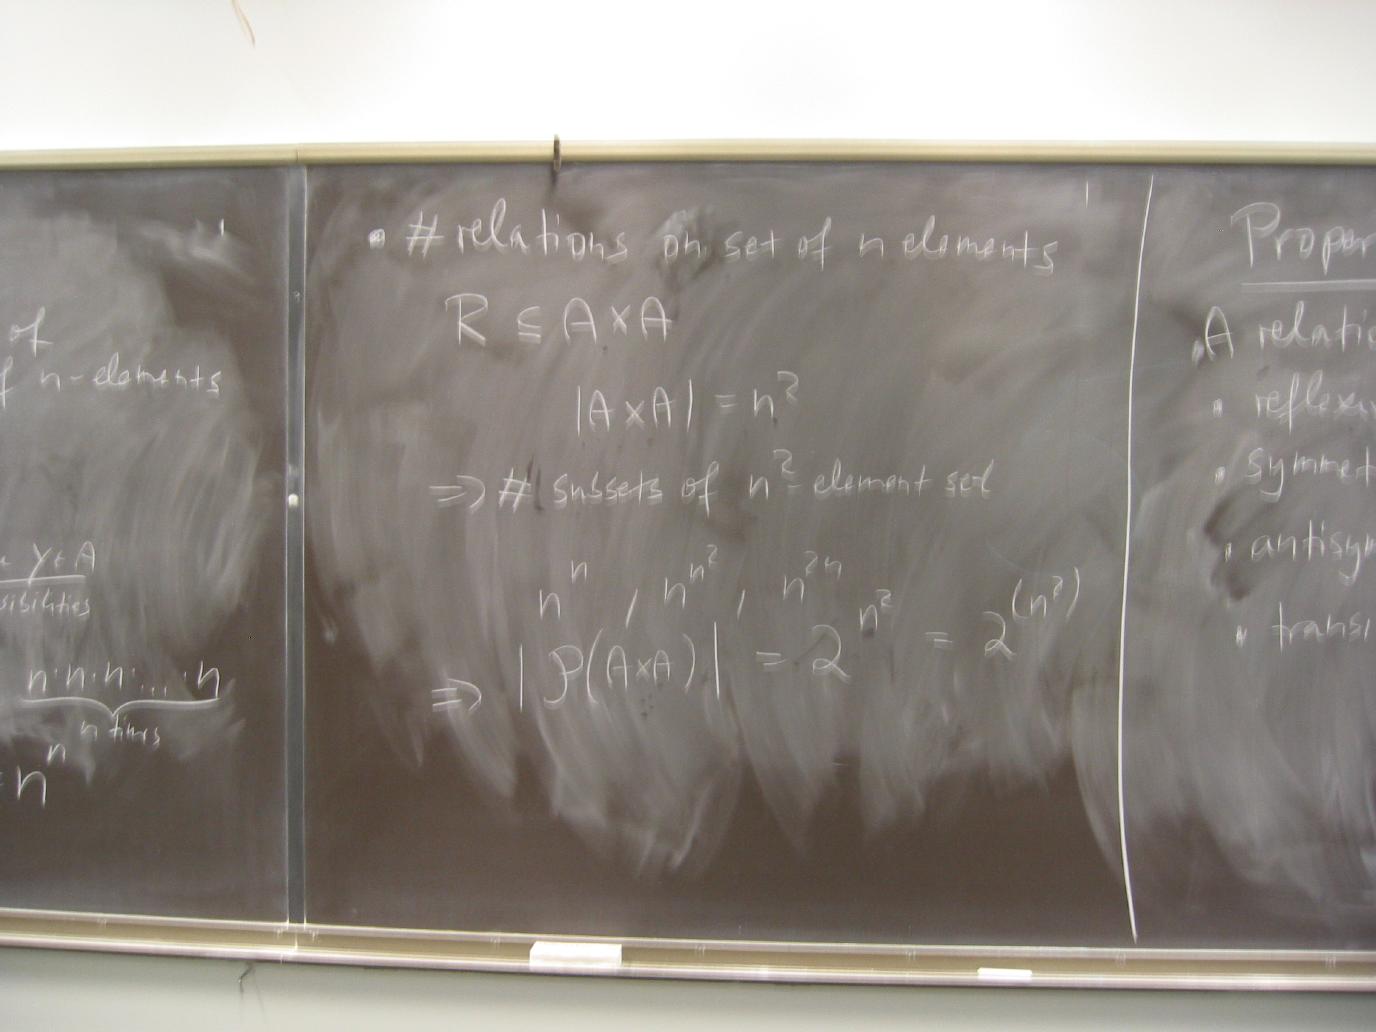 of
n-elements
Y∈A
n·n·n·...·n
n times
n^n
• # relations on set of n elements
R ⊆ A×A
|A×A| = n²
=> # subsets of n²-element set
n^n, n^n², n^2n
=> |P(A×A)| = 2^n² = 2^(n²)
Proper
A relatio
• reflexiv
• symmet
• antisym
• transi